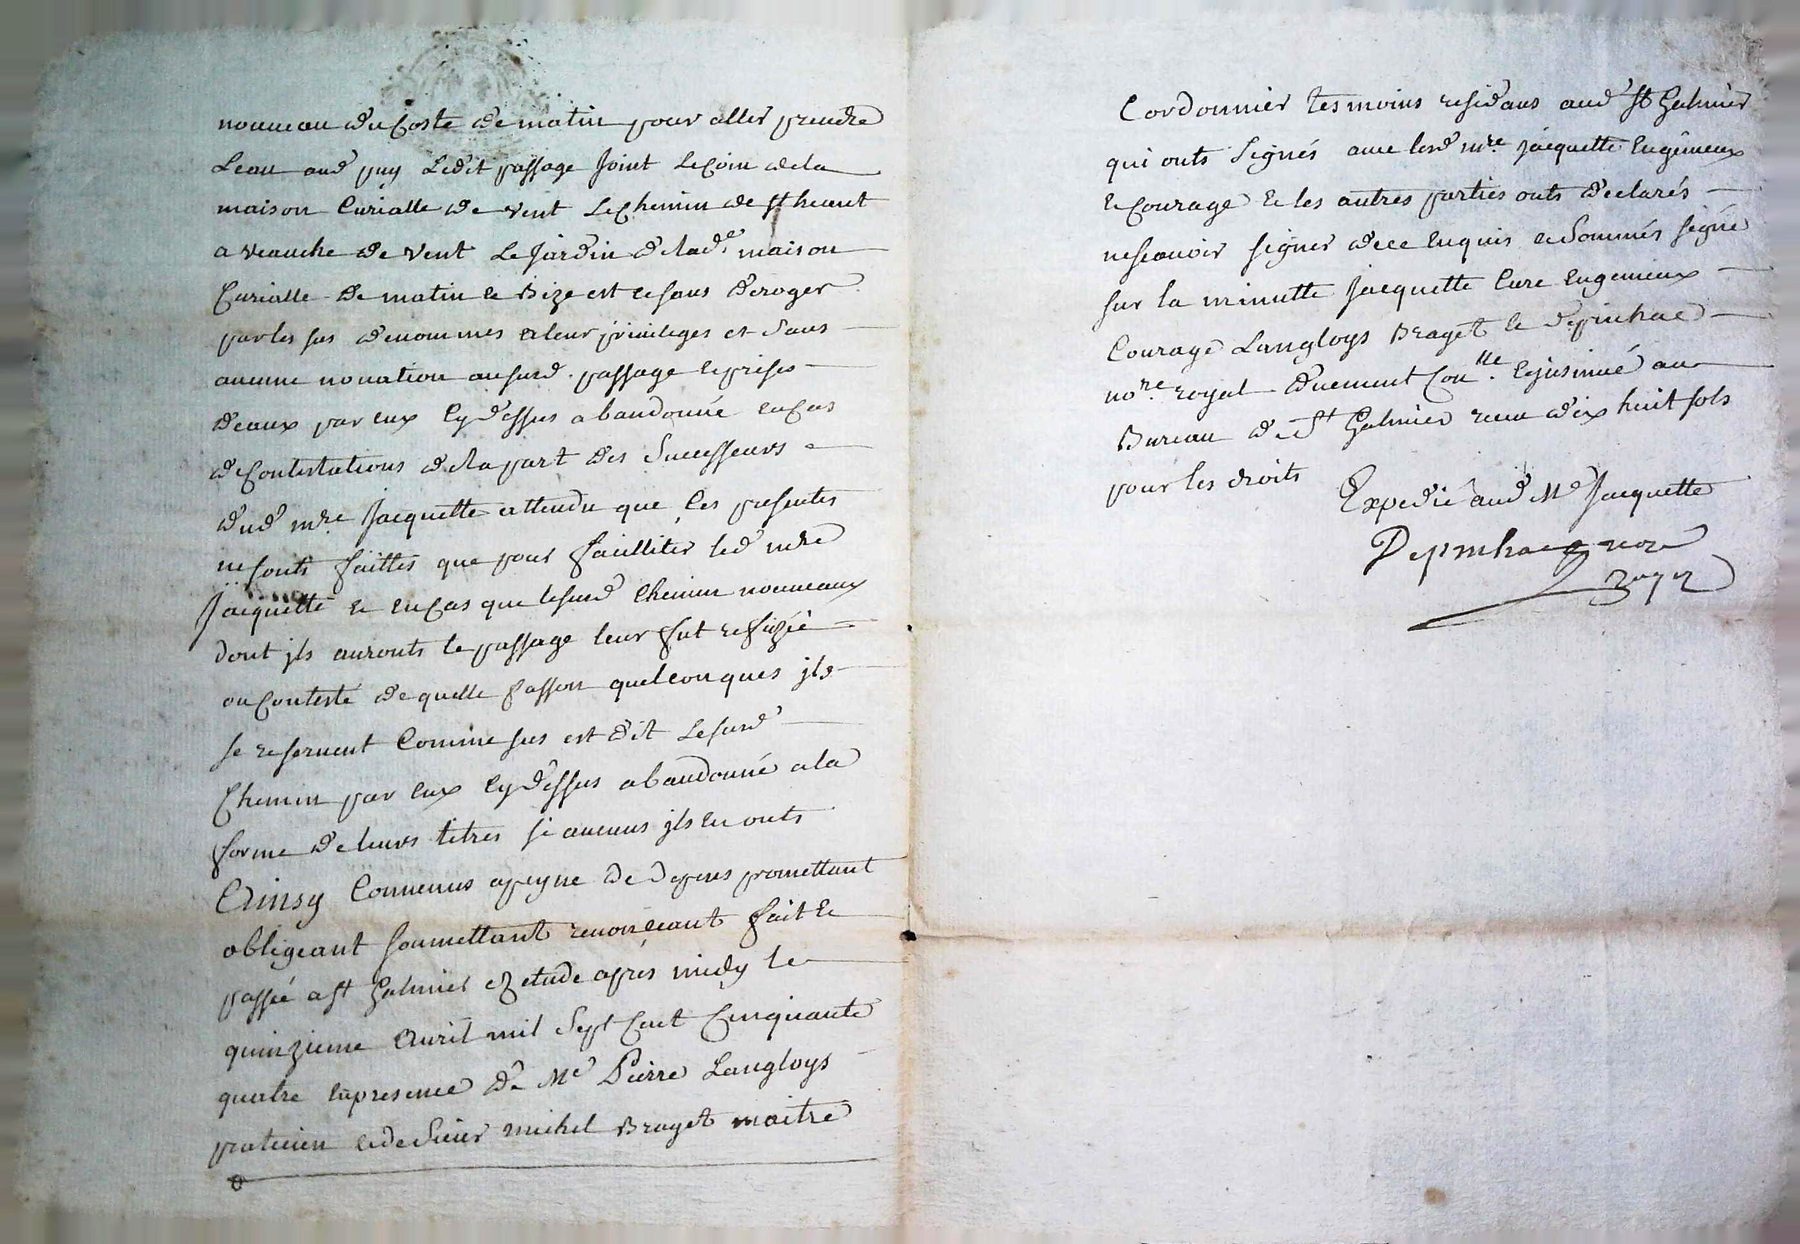 nouveau du Coste de matin pour aller prendre
Leau aud puy Ledit passage Joint Le Coin de la
maison Curialle de vent Le Chemin de st heant
a veauche de vent Le Jardin de lad.e maison
Curialle de matin et Bize et ce sans deroger
par les sus denommes a leur privileges et sans
aucune novation au surd. passage et prises
deaux par eux Cy dessus abandonné en Cas
de Contestations de la part des Successeurs
dud mre Jacquette attendu que Ces presentes
ne sonts faittes que pour facilliter led mre
Jacquette et en Cas que le surd Chemin nouveaux
dont jls auronts le passage leur fut refuzée
ou Contesté de quelle fasson quelconques jls
se reservent Comme sus est dit Le surd
Chemin par eux Cy dessus abandonné a la
forme de leurs titres si aucuns jls en onts
Ainsy Convenus apeyne de depens promettant
obligeant soumettant renonçeant fait et
passé a st Galmier etude apres midy le
quinzieme avril mil Sept Cent Cinquante
quatre en presence de Me Pierre Langloys
praticien et de Sieur michel Braget maitre
Cordonnier tesmoins residans aud st Galmier
qui onts Signés avec lesd mre jacquette Eugenieux
et Courage et les autres parties onts declarés
ne scavoir signer de ce Enquis et Sommés signé
sur la minutte Jacquette Curé Eugenieux
Courage Langloys Braget et depinhac
nore royal duement Conlle et jnsinué au
Bureau de St Galmier receu dix huit sols
pour les droits
Expedié aud Me Jacquette
Depinhac nore
royal